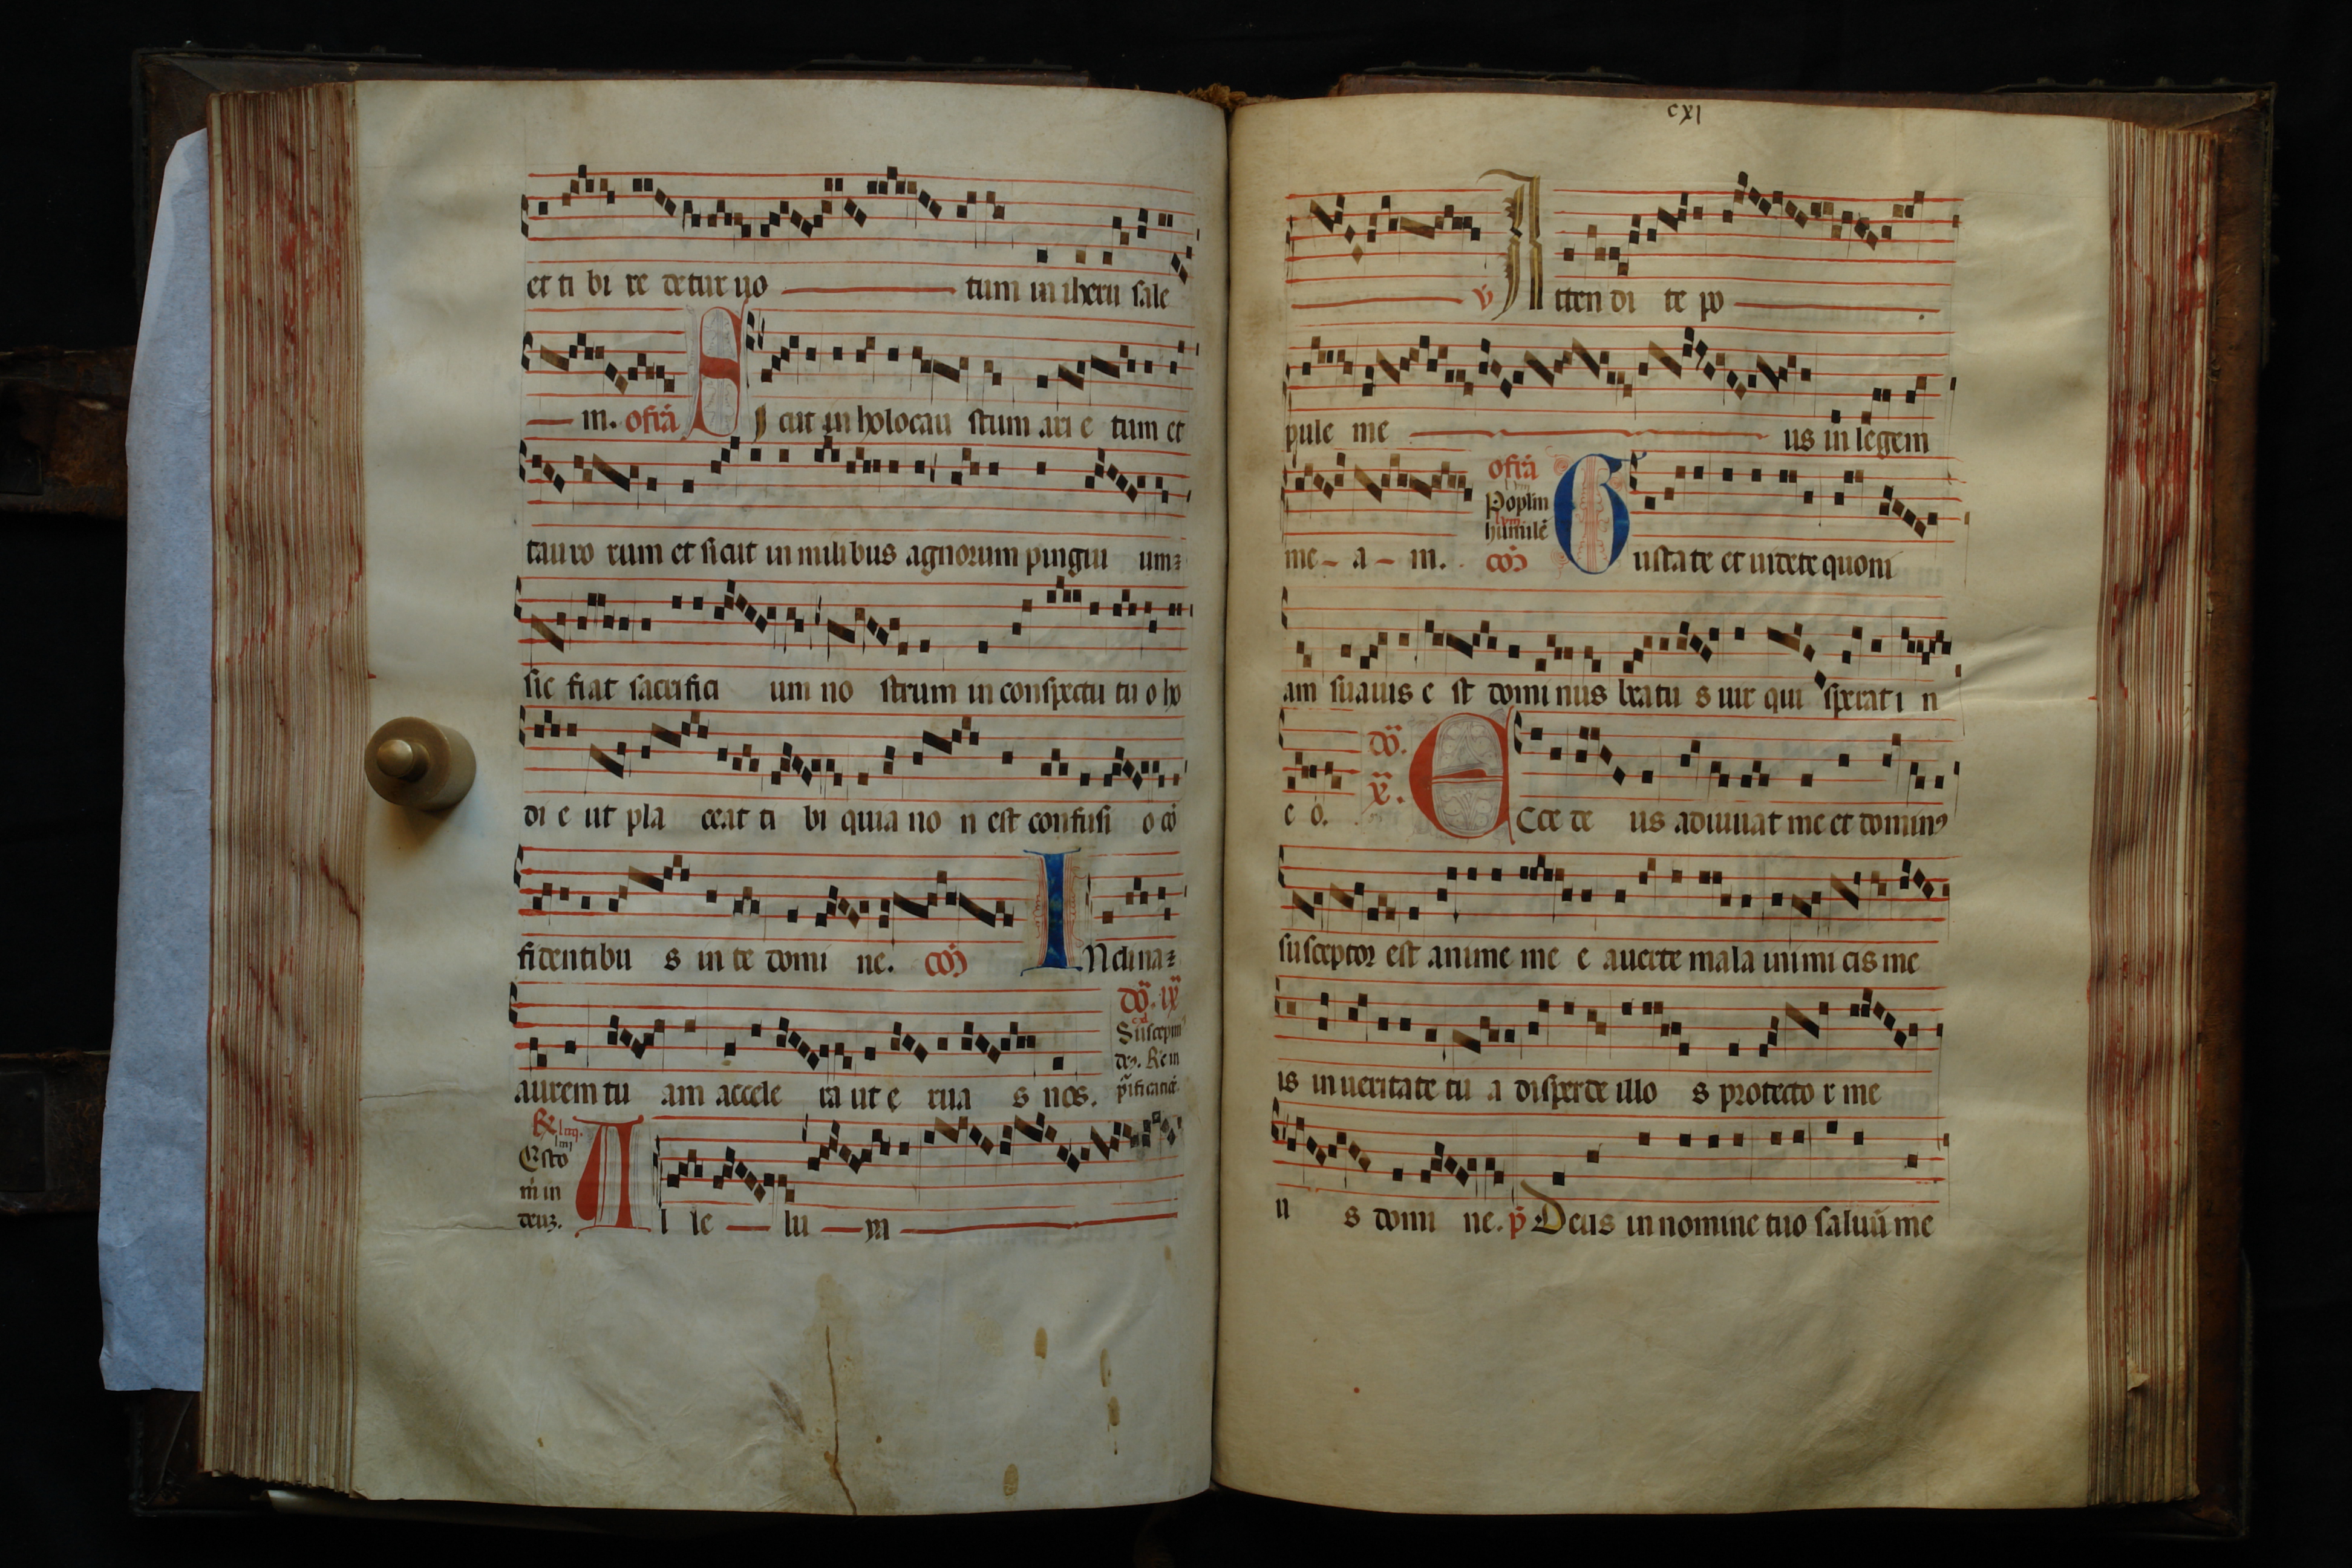 et ti bi re detur uo tum in iheru sale
m. ofr̄a S I cut in holocau stum ari e tum et
tauro rum et sicut in milibus agnorum pingui um⁊
sic fiat sacrifici um no strum in conspectu tu o ho
di e ut pla ceat ti bi quia no n est confusi o cō
fidentibu s in te domi ne. cōō I Nclina⁊
dō. ix
Suscepim
aurem tu am accele ra ut e rua s nos.
Esto
m̄ in
deuȝ.
A l le lu ya
cxi
v̄ A tten di te po
pule me us in legem
ofr̄a
Poplm
humilē
me a m. cōō G ustate et uidete quoni
am suauis e st domi nus beatu s uir qui sperat i n
dō.
x.
e o. E Cce de us adiuuat me et dominꝰ
susceptor est anime me e auerte mala inimi cis me
is in ueritate tu a disperde illo s protecto r me
u s domi ne. p̄ Deus in nomine tuo saluū me